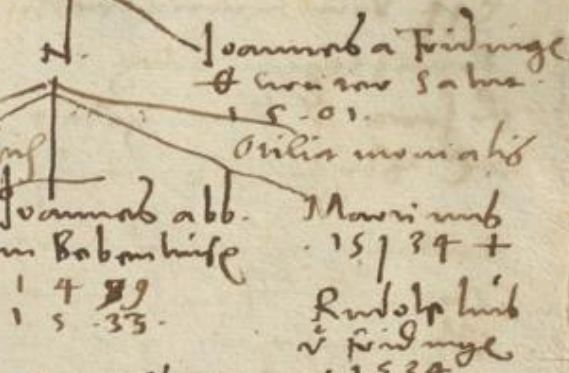 N.
Joannes a Fridinge
1 5 . 0 1 .
Otilia monialis
Joannes abb.
in Bebenhuse
1 4 9 9
1 5 . 33 .
Maximus
. 15 34 +
Rudolphus
v̊ fridinge
1534